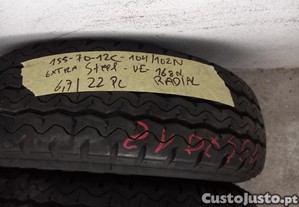 155-70-12C-104/102N
EXTRA STEEL-VE-168N
6,7/22 PC RADIAL
CustoJusto.pt